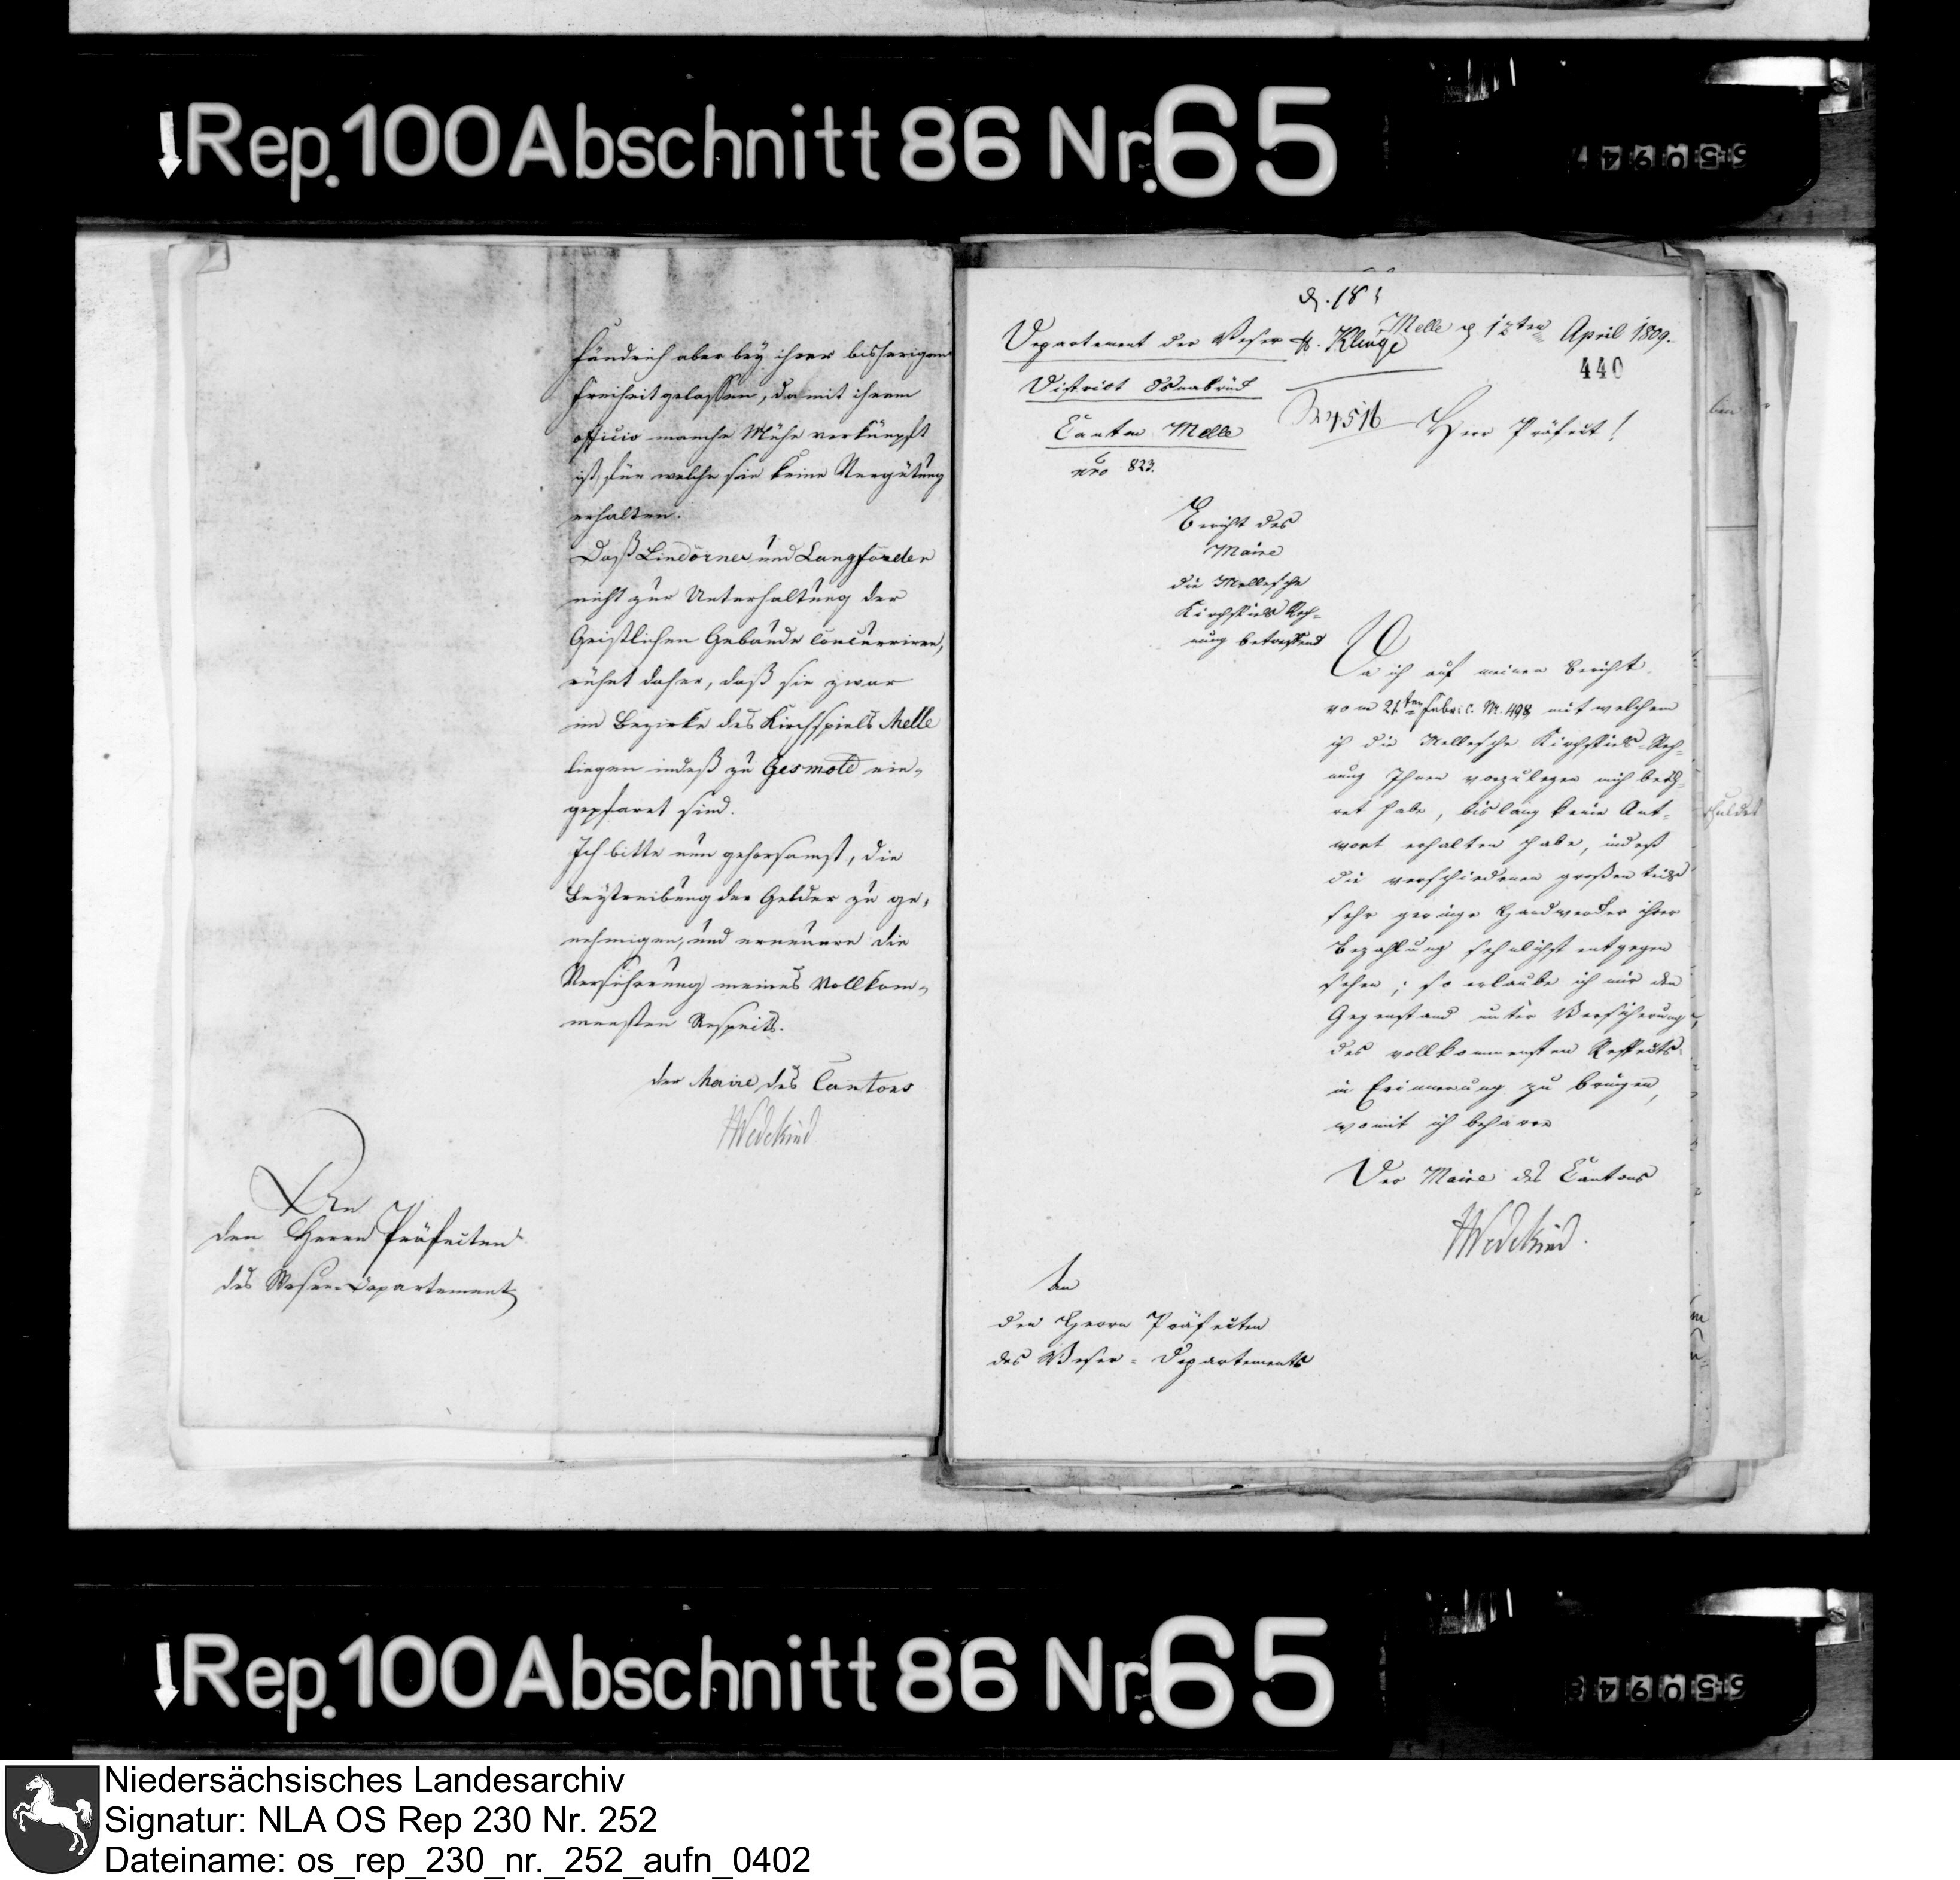 Rep. 100 Abschnitt 86 Nr. 65
fändrich aber bey ihrer bisherigen
Freiheit gelassen, da mit ihrem
officio manche Mühe verknüpft
ist, für welche sie keine Vergütung
erhalten.
Daß Lindörner und Langförder
nicht zur Unterhaltung der
Geistlichen Gebäude concurriren,
rührt daher, daß sie zwar
im Bezirke des Kirchspiels Melle
liegen indeß zu Gesmold ein-
gepfarrt sind.
Ich bitte nun gehorsamst, die
Beytreibung der Gelder zu ge-
nehmigen, und erneuere die
Versicherung meines Vollkom-
mensten Respects.
der Maire des Cantons
HWedekind
An
den Herrn Präfecten
des Weser-Departements
Departement der Weser
H. Klinge
Melle d 12ten April 1809.
440
District Osnabrück
Canton Melle
nro 823.
4516
Herr Präfect!
Bericht des
Maire
die Mellesche
Kirchspiels Rech-
nung betreffend
Da ich auf meinen Bericht
vom 21ten Febr. c. N. 498 mit welchem
ich die Mellesche Kirchspiels-Rech-
nung Ihnen vorzulegen mich beeh-
ret habe, bislang keine Ant-
wort erhalten habe, indeß
die verschiedenen großen theils
sehr geringe Handwerker ihrer
Bezahlung sehnlichst entgegen
sehen; so erlaube ich mir den
Gegenstand unter Versicherung
des vollkommensten Respects
in Erinnerung zu bringen,
womit ich beharre
Der Maire des Cantons
HWedekind.
An
den Herrn Präfecten
des Weser-Departements
Rep. 100 Abschnitt 86 Nr. 65
Niedersächsisches Landesarchiv
Signatur: NLA OS Rep 230 Nr. 252
Dateiname: os_rep_230_nr._252_aufn_0402